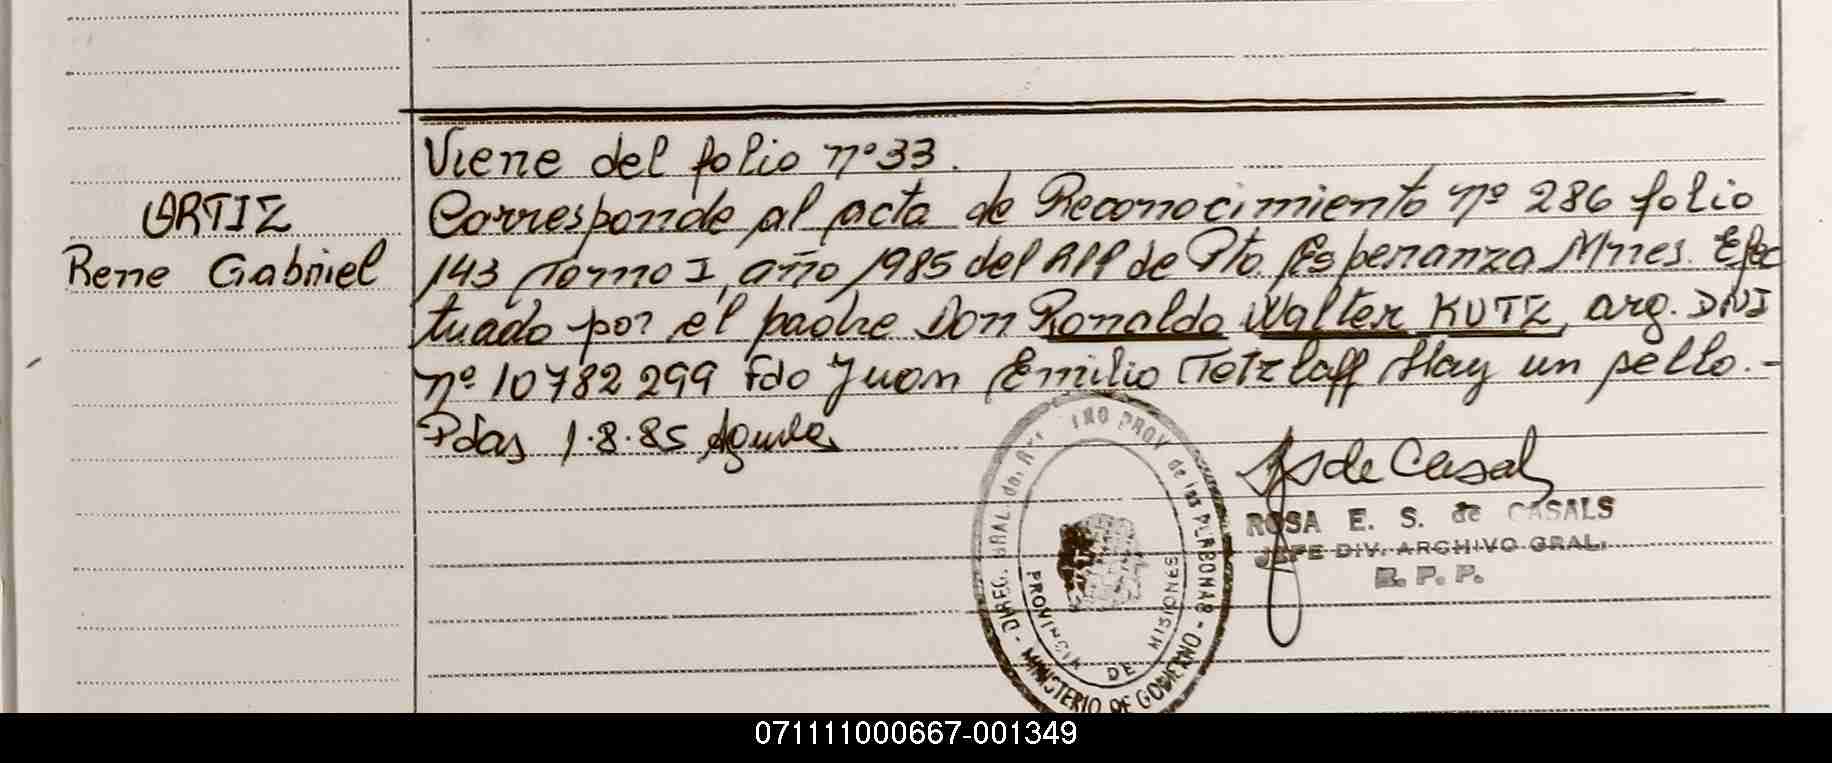 Viene del folio nº 33.
ORTIZ
Rene Gabriel
Corresponde al acta de Reconocimiento nº 286 folio
143 Tomo I, año 1985 del RPP de Pto. Esperanza Mnes. Efec
tuado por el padre Don Ronaldo Walter KUTZ, arg. DNI
nº 10782299 Fdo Juan Emilio Tetzlaff Hay un sello.-
Pdas 1.8.85
RS de Casals
ROSA E. S. de CASALS
JEFE DIV. ARCHIVO GRAL.
R. P. P.
PROV. de las PERSONAS
- MINISTERIO DE GOBIERNO -
PROVINCIA DE MISIONES
071111000667-001349